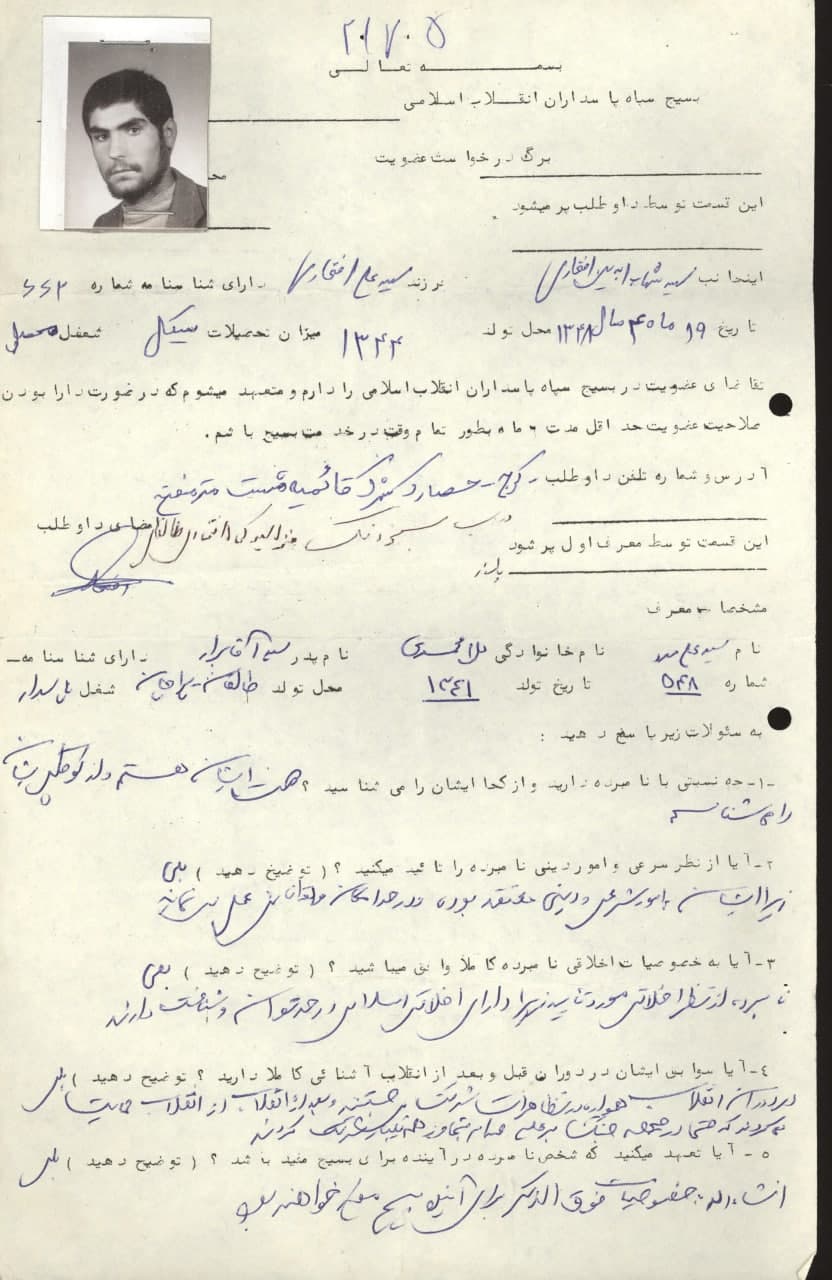 ۲۱۷۰۵
بسمه تعالی
بسیج سپاه پاسداران انقلاب اسلامی
برگ درخواست عضویت
مح
این قسمت توسط داوطلب پر میشود
اینجانب سید شهاب الدین افتخاری فرزند سید علی افتخاری دارای شناسنامه شماره ۶۶۲
تاریخ ۱۹ ماه ۴ سال محل تولد ۱۳۴۴ میزان تحصیلات سیکل شغل محصل
تقاضای عضویت در بسیج سپاه پاسداران انقلاب اسلامی را دارم و متعهد میشوم که در صورت دارا بودن
صلاحیت عضویت حداقل مدت ۶ ماه بطور تمام وقت در خدمت بسیج باشم.
آدرس و شماره تلفن داوطلب - کرج - حصارک شهرک قائمیه شصت متری
امضای داوطلب
این قسمت توسط معرف اول پر شود
مشخصات معرف
نام سید علی نام خانوادگی نام پدر سید آقا دارای شناسنامه
شماره ۵۴۸ تاریخ تولد ۱۳۴۱ محل تولد طالقان شغل پاسدار
به سئوالات زیر پاسخ دهید :
۱- چه نسبتی با نامبرده دارید و از کجا ایشان را می شناسید ؟ ایشان هستم و از کوچکی ایشان
را می شناسم
۲- آیا از نظر شرعی و امور دینی نامبرده را تائید میکنید ؟ ( توضیح دهید ) بلی
زیرا ایشان به امور شرعی و دینی معتقد بوده و در حد امکان عمل می نماید
۳- آیا به خصوصیات اخلاقی نامبرده کاملا واقف میباشید ؟ ( توضیح دهید ) بلی
نامبرده از نظر اخلاقی مورد تایید زیرا دارای اخلاق اسلامی در حد توان و شناخت دارند
۴- آیا سوابق ایشان در دوران قبل و بعد از انقلاب آشنائی کاملا دارید ؟ توضیح دهید ) بلی
در دوران انقلاب همواره در تظاهرات شرکت می جستند و بعد از انقلاب از انقلاب حمایت
که حتی در جبهه جنگ بر علیه صدام متجاوز شرکت کردند
۵- آیا تعهد میکنید که شخص نامبرده در آینده برای بسیج مفید باشد ؟ ( توضیح دهید ) بلی
انشاءالله خصوصیات فوق الذکر برای آینده بسیج خواهند بود